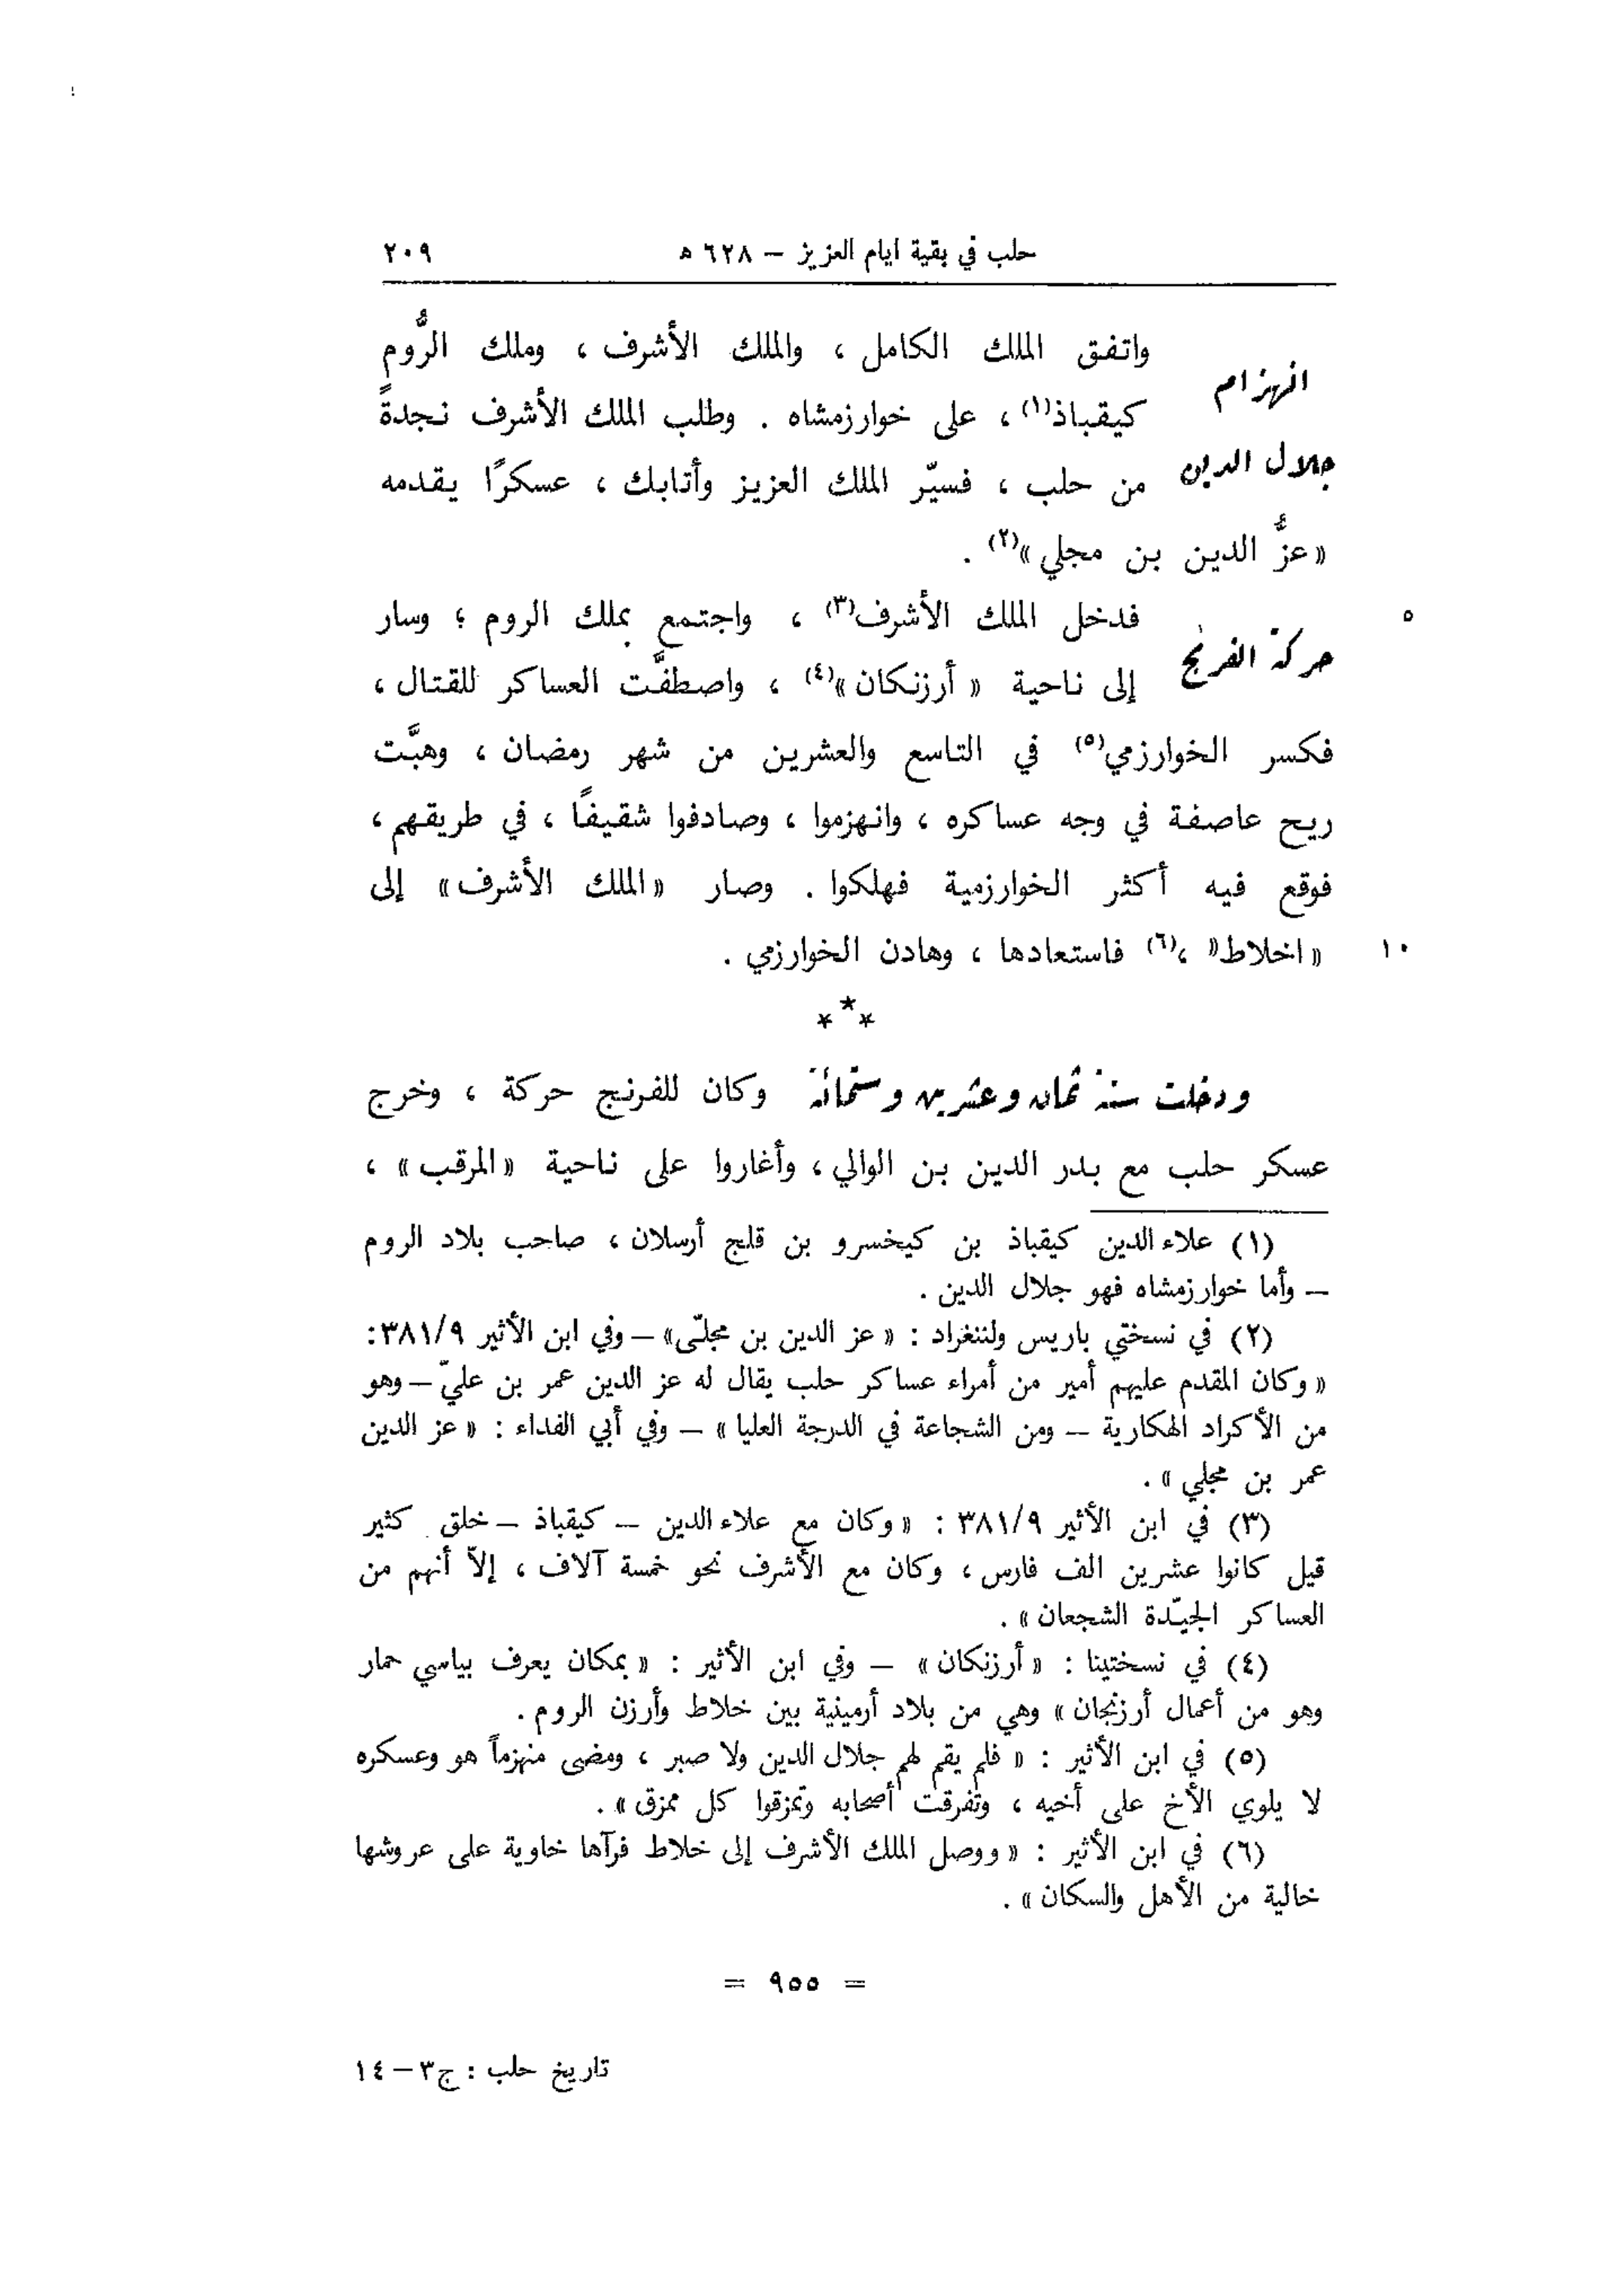 حلب في بقية ايام العزيز – ٦٢٨ ه ٢٠٩
انهزام
جلال الدين
واتفق الملك الكامل ، والملك الأشرف ، وملك الرُّوم
كيقباذ(١) ، على خوارزمشاه . وطلب الملك الأشرف نجدةً
من حلب ، فسيّر الملك العزيز وأتابك ، عسكرًا يقدمه
« عزُّ الدين بن مجلي »(٢) .
حركة الفرنج
٥ فدخل الملك الأشرف(٣) ، واجتمع بملك الروم ؛ وسار
إلى ناحية « أرزنكان »(٤) ، واصطفَّت العساكر للقتال ،
فكسر الخوارزمي(٥) في التاسع والعشرين من شهر رمضان ، وهبَّت
ريح عاصفة في وجه عساكره ، وانهزموا ، وصادفوا شقيفًا ، في طريقهم ،
فوقع فيه أكثر الخوارزمية فهلكوا . وصار «الملك الأشرف» إلى
١٠ «اخلاط» ،(٦) فاستعادها ، وهادن الخوارزمي .
***
ودخلت سنة ثمان وعشرين وستمائة وكان للفرنج حركة ، وخرج
عسكر حلب مع بدر الدين بن الوالي ، وأغاروا على ناحية «المرقب» ،
(١) علاء الدين كيقباذ بن كيخسرو بن قلج أرسلان ، صاحب بلاد الروم
– وأما خوارزمشاه فهو جلال الدين .
(٢) في نسختي باريس ولننغراد : « عز الدين بن مجلّى» – وفي ابن الأثير ٣٨١/٩:
« وكان المقدم عليهم أمير من أمراء عساكر حلب يقال له عز الدين عمر بن عليّ – وهو
من الأكراد الهكارية – ومن الشجاعة في الدرجة العليا » – وفي أبي الفداء : « عز الدين
عمر بن مجلي » .
(٣) في ابن الأثير ٣٨١/٩ : « وكان مع علاء الدين – كيقباذ – خلق كثير
قيل كانوا عشرين الف فارس ، وكان مع الأشرف نحو خمسة آلاف ، إلاّ أنهم من
العساكر الجيّدة الشجعان » .
(٤) في نسختينا : « أرزنكان» – وفي ابن الأثير : « بمكان يعرف بياسي حمار
وهو من أعمال أرزنجان » وهي من بلاد أرمينية بين خلاط وأرزن الروم .
(٥) في ابن الأثير : « فلم يقم لهم جلال الدين ولا صبر ، ومضى منهزماً هو وعسكره
لا يلوي الأخ على أخيه ، وتفرقت أصحابه وتمزقوا كل ممزق » .
(٦) في ابن الأثير : « ووصل الملك الأشرف إلى خلاط فرآها خاوية على عروشها
خالية من الأهل والسكان » .
= ٩٥٥ =
تاريخ حلب : ج٣ – ١٤